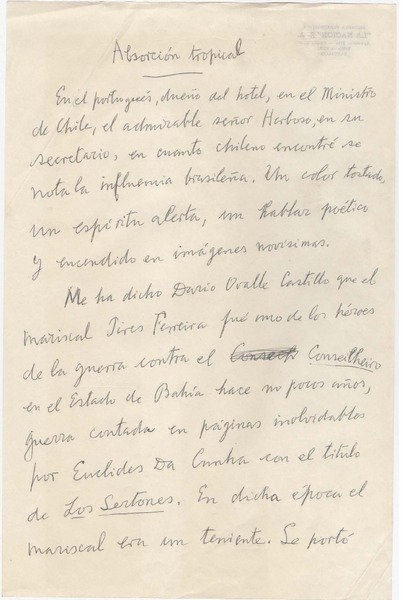 Absorción tropical
En el portugués, dueño del hotel, en el Ministro
de Chile, el admirable señor Herboso, en su
secretario, en cuanto chileno encontré se
nota la influencia brasileña. Un color tostado,
un espíritu alerta, un hablar poético
y encendido en imágenes novísimas.
Me ha dicho Darío Ovalle Castillo que el
mariscal Pires Ferreira fué uno de los héroes
de la guerra contra el Conseilheiro
en el Estado de Bahía hace no pocos años,
guerra contada en páginas inolvidables
por Euclides Da Cunha con el título
de Los Sertones. En dicha época el
mariscal era un teniente. Se portó